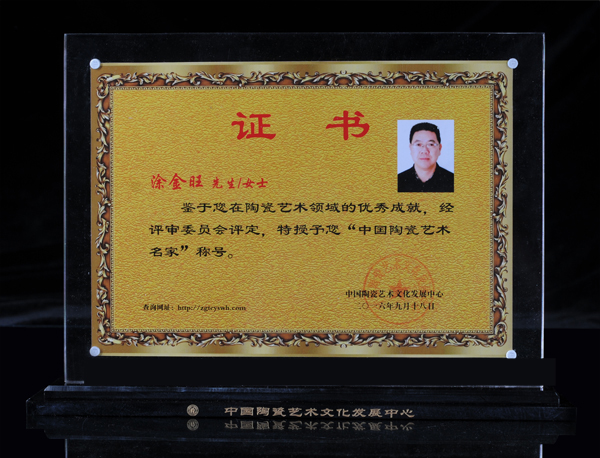 证 书
涂金旺 先生/女士
鉴于您在陶瓷艺术领域的优秀成就，经
评审委员会评定，特授予您“中国陶瓷艺术
名家”称号。
中国陶瓷艺术文化发展中心
二〇一六年九月十八日
查询网址：http://zgtcyswh.com
中国陶瓷艺术文化发展中心